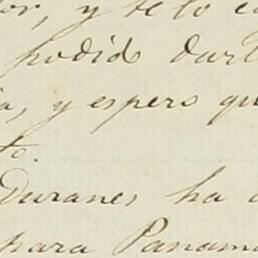 or, y te lo
podido darl
a, y espero qu
to.
Duranes ha
para Panam